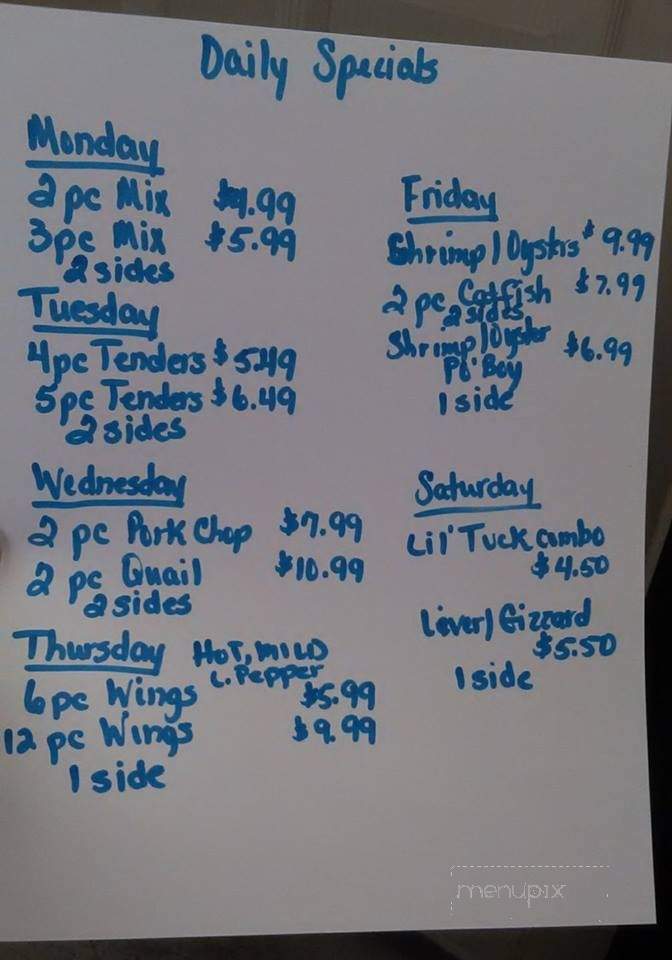 Daily Specials
Monday
2 pc Mix $4.99
3pc Mix $5.99
2 sides
Tuesday
4pc Tenders $5.49
5pc Tenders $6.49
2 sides
Wednesday
2 pc Pork Chop $7.99
2 pc Quail $10.99
2 sides
Thursday HOT, MILD
L. Pepper
6pc Wings $5.99
12 pc Wings $9.99
1 side
Friday
Shrimp/Oysters $9.99
2 pc Catfish $7.99
2 sides
Shrimp/Oyster $6.99
Po' Boy
1 side
Saturday
Lil' Tuck combo
$4.50
Liver/Gizzard
$5.50
1 side
menupix